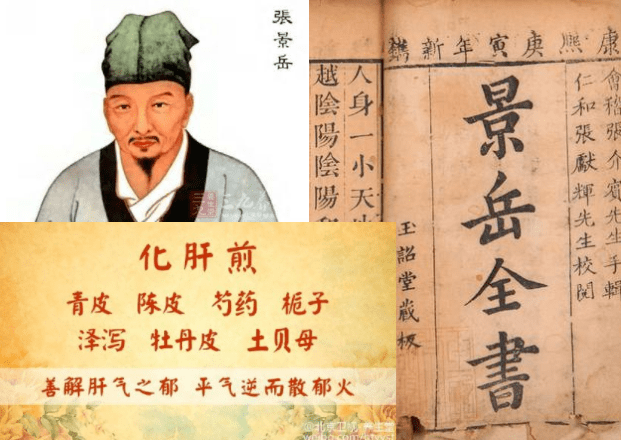 張景岳
康熙庚寅年新鐫
會稽張介賓先生手輯
仁和張獻輝先生校閱
景岳全書
玉詔堂藏板
人身一小天地
越陰陽陰陽
化肝煎
青皮 陈皮 芍药 栀子
泽泻 牡丹皮 土贝母
善解肝气之郁 平气逆而散郁火
@北京卫视 养生堂